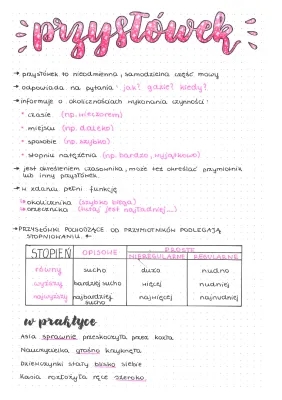 przysłówek
→ przysłówek to nieodmienna, samodzielna część mowy
→ odpowiada na pytania: jak? gdzie? kiedy?
→ informuje o okolicznościach wykonania czynności:
* czasie (np. wieczorem)
* miejscu (np. daleko)
* sposobie (np. szybko)
* stopniu natężenia (np. bardzo, wyjątkowo)
→ jest określeniem czasownika, może też określać przymiotnik
lub inny przysłówek
→ w zdaniu pełni funkcję
↳ okolicznika (szybko biega)
↳ orzecznika (tutaj jest najładniej...)
→ PRZYSŁÓWKI POCHODZĄCE OD PRZYMIOTNIKÓW PODLEGAJĄ
STOPNIOWANIU ←
STOPIEŃ OPISOWE PROSTE
NIEREGULARNE REGULARNE
równy sucho dużo nudno
wyższy bardziej sucho więcej nudniej
najwyższy najbardziej sucho najwięcej najnudniej
w praktyce
Asia sprawnie przeskoczyła przez kozła
Nauczycielka groźno krzyknęła
Dziewczynki stały blisko siebie
Kasia rozłożyła ręce szeroko